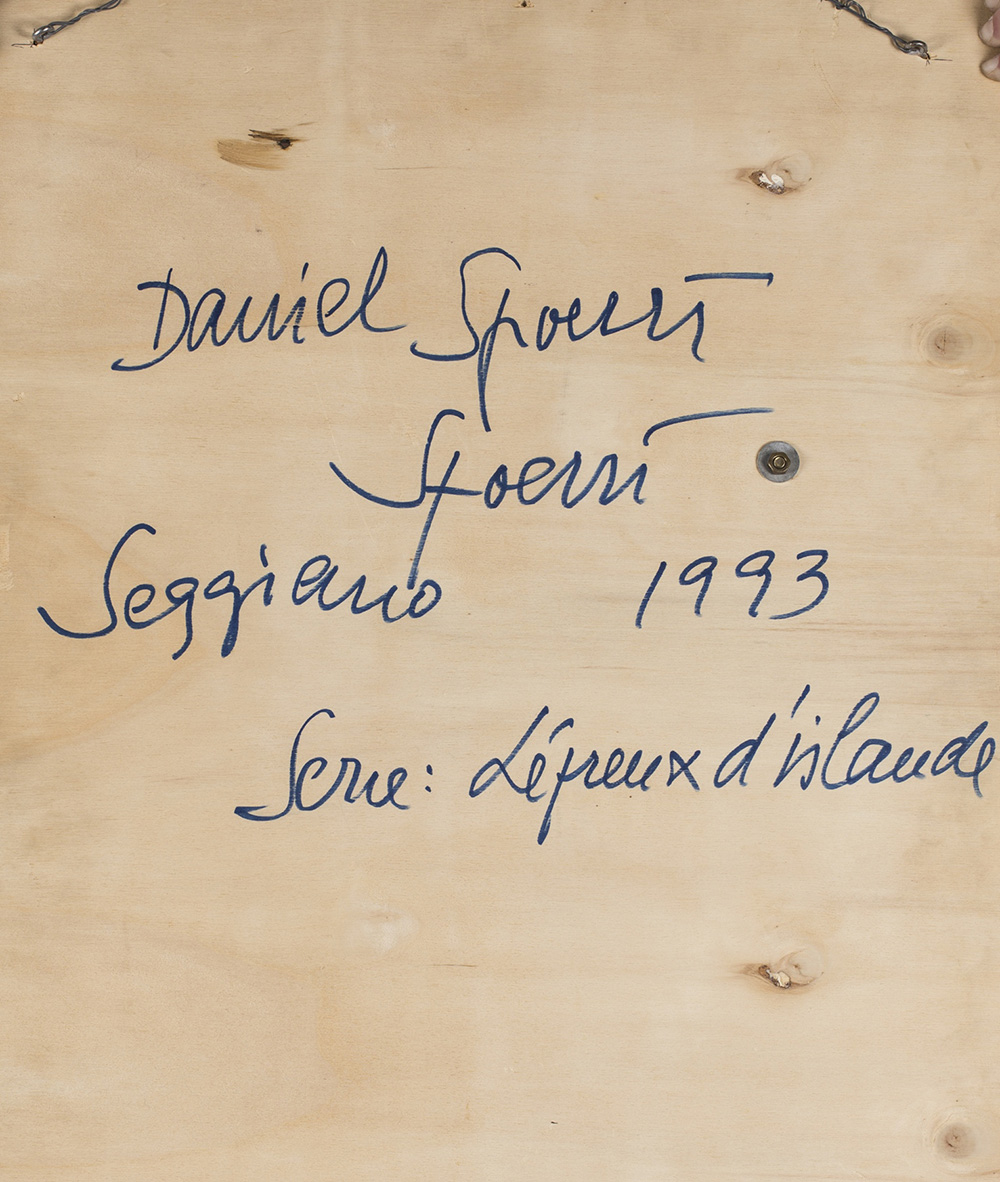 Daniel Spoerri
Spoerri
Seggiano 1993
Serie: Lépreux d'islande